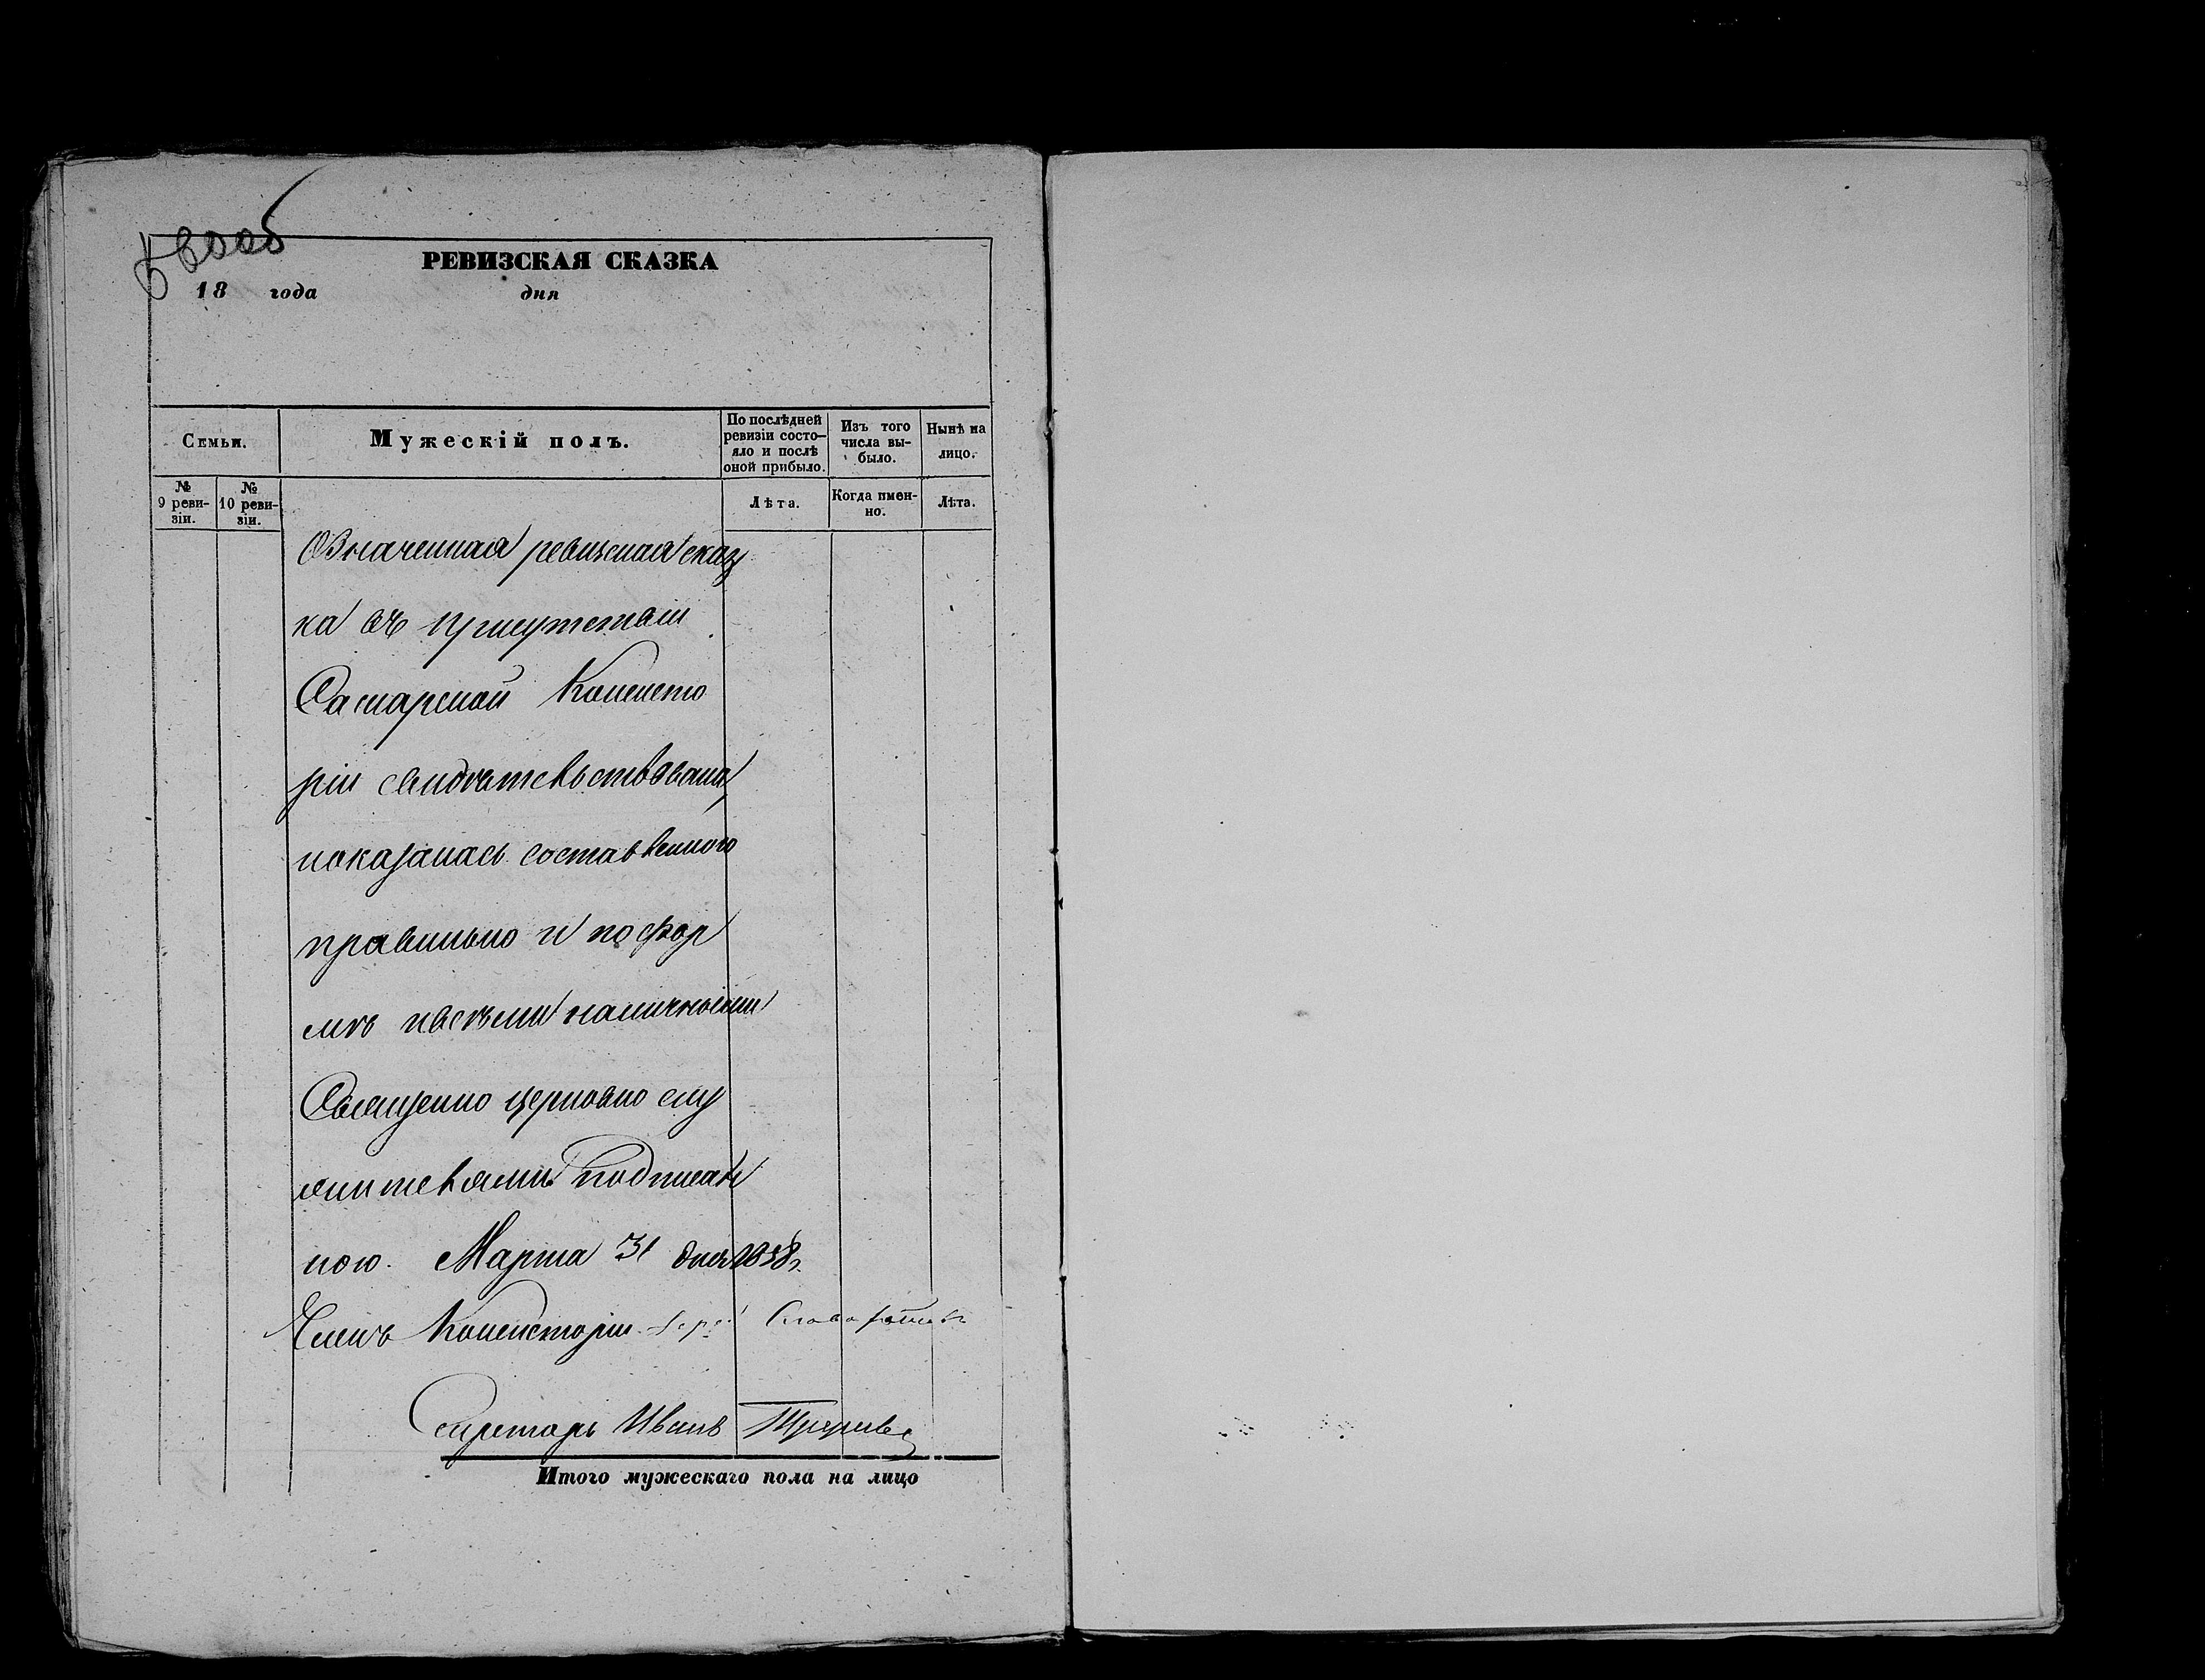 РЕВИЗСКАЯ СКАЗКА
18 года дня
Семьи.
Мужескій полъ.
По послѣдней ревизіи состо-
яло и послѣ оной прибыло.
Изъ того числа вы-
было.
Нынѣ на лицо.
№ 9 реви-
зіи.
№ 10 реви-
зіи.
Лѣта.
Когда имен-
но.
Лѣта.
Означенная ревизская сказ
ка въ присутствіи
Самарской Консисто
ріи свидѣтельствована,
показалась составленною
правильно и по фор
мѣ и всѣми наличными
Священно церковно слу
жителями подписан
ною. Марта 31 дня 1858 г.
Членъ Консисторіи
Секретарь Иванъ
Итого мужескаго пола на лицо